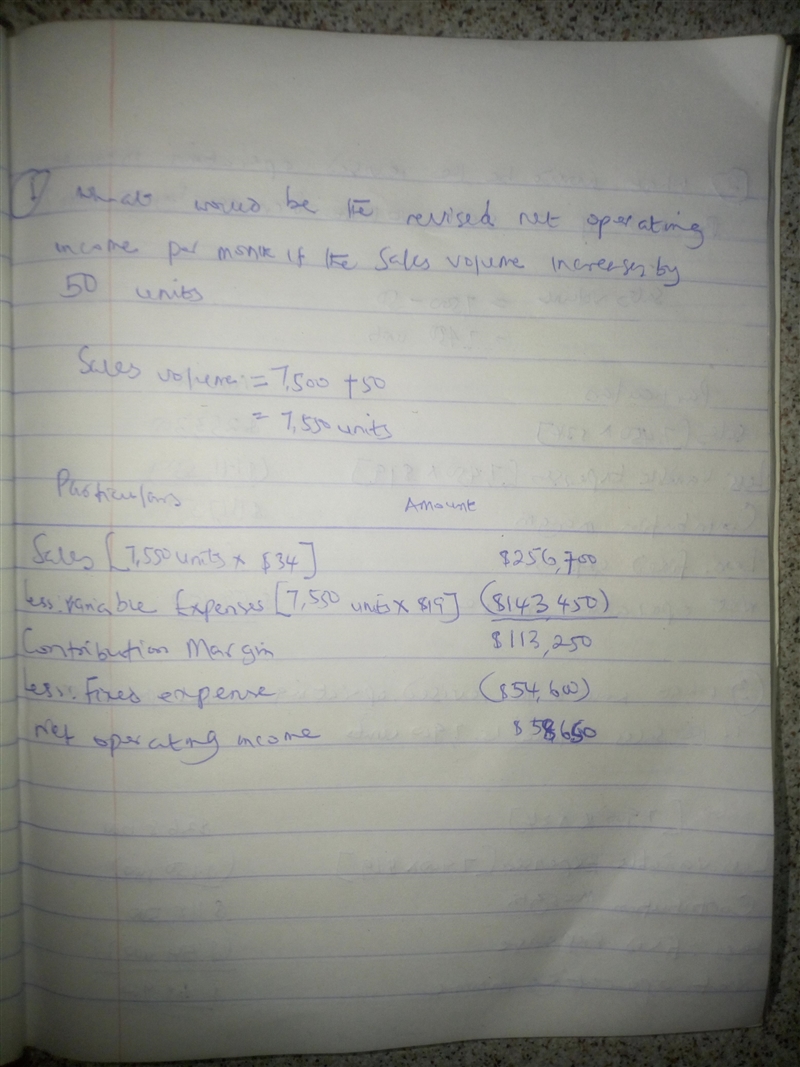 ① What would be the revised net operating
income per month if the sales volume increases by
50 units
Sales volume = 7,500 + 50
= 7,550 units
Particulars Amount
Sales [7,550 units x $34] $256,700
Less: variable Expenses [7,550 units x $19] ($143,450)
Contribution Margin $113,250
Less: Fixed expense ($54,600)
Net operating income $58650